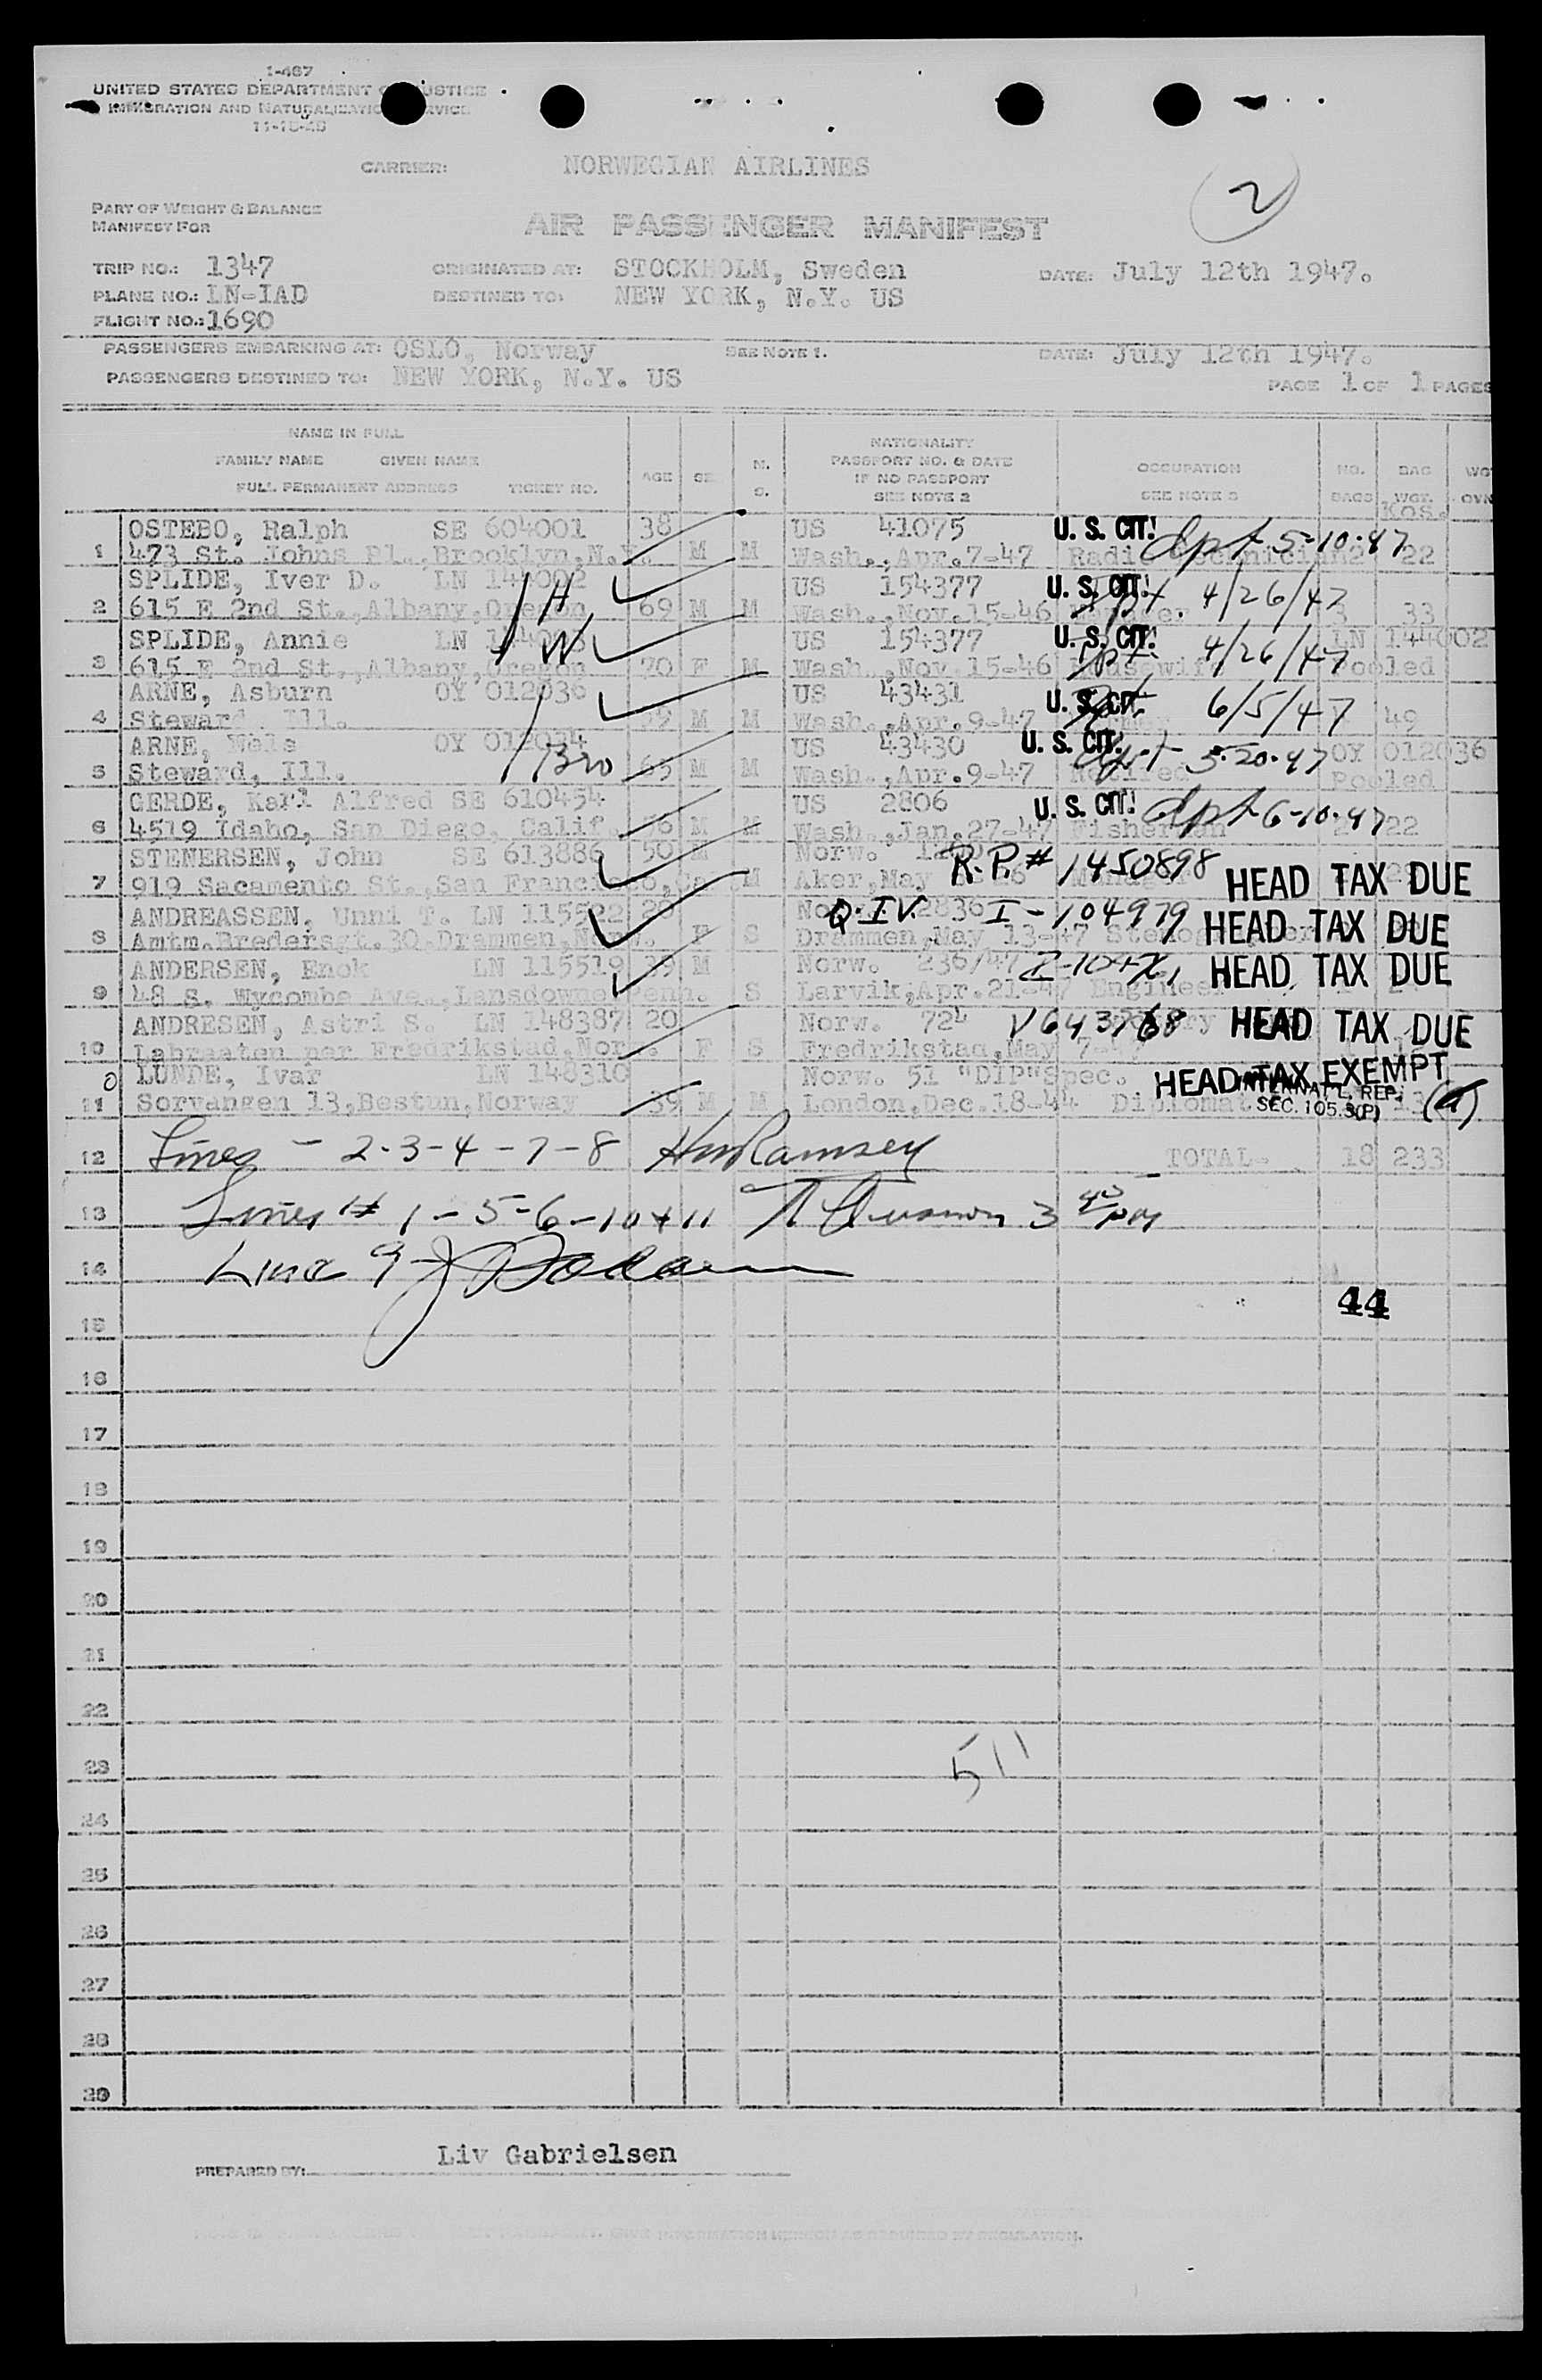 I-467
UNITED STATES DEPARTMENT OF JUSTICE
IMMIGRATION AND NATURALIZATION SERVICE
CARRIER: NORWEGIAN AIRLINES
2
PART OF WEIGHT & BALANCE
MANIFEST FOR
AIR PASSENGER MANIFEST
TRIP NO.: 1347 ORIGINATED AT: STOCKHOLM, Sweden DATE: July 12th 1947.
PLANE NO.: LN-IAD DESTINED TO: NEW YORK, N.Y. US
FLIGHT NO.: 1690
PASSENGERS EMBARKING AT: OSLO, Norway SEE NOTE 1. DATE: July 12th 1947.
PASSENGERS DESTINED TO: NEW YORK, N.Y. US
PAGE 1 OF 1 PAGES
NAME IN FULL
FAMILY NAME GIVEN NAME
FULL PERMANENT ADDRESS TICKET NO.
AGE
M. S.
NATIONALITY
PASSPORT NO. & DATE
IF NO PASSPORT
SEE NOTE 2
OCCUPATION
SEE NOTE 3
NO. BAGS
BAG WGT. Kos.
OSTEBO, Ralph SE 604001 38 US 41075 U. S. CIT! dpt 5-10-47
1 473 St. Johns Pl., Brooklyn, N.Y. M M Wash., Apr.7-47 Radio Technician 2 22
SPLIDE, Iver D. LN 144002 H US 154377 U. S. CIT! dpt. 4/26/47
2 615 E 2nd St., Albany, Oregon 69 M M Wash., Nov.15-46 3 33
SPLIDE, Annie LN W US 154377 U. S. CIT! dpt 4/26/47 LN 144002
3 615 E 2nd St., Albany, Oregon 70 F M Wash., Nov.15-46 Housewife Pooled
ARNE, Asburn OY 012036 US 43431 U. S. CIT. dpt 6/5/47
4 Steward Ill. 59 M M Wash., Apr.9-47 49
ARNE, Nels OY 012034 Bro US 43430 U. S. CIT! dpt 5-20-47 OY 012036
5 Steward, Ill. 65 M M Wash., Apr.9-47 Retired Pooled
GERDE, Karl Alfred SE 610454 US 2806 U. S. CIT! dpt 6-10-47
6 4519 Idaho, San Diego, Calif. 56 M M Wash., Jan.27-47 Fisherman 22
STENERSEN, John SE 613886 50 M Norw. R.P.# 1450898
7 919 Sacamento St., San Francisco, Ca. M Aker, May Manager HEAD TAX DUE
ANDREASSEN, Unni T. LN 115522 20 Norw. 2836 Q.IV. I-104979
8 Amtm.Bredersgt.30.Drammen, Norw. F S Drammen, May 13-47 Stenographer HEAD TAX DUE
ANDERSEN, Enok LN 115519 39 M Norw. 236/47
9 48 S. Wycombe Ave., Lansdowne, Penn. S Larvik, Apr.21-47 Engineer HEAD TAX DUE
ANDRESEN, Astri S. LN 148387 20 Norw. 724 V643768
10 Labraaten per Fredrikstad, Norw. F S Fredrikstad, May 7-47 HEAD TAX DUE
LUNDE, Ivar LN 148310 Norw. 51 "DIP"Spec. HEAD TAX EXEMPT
11 Sorvangen 13, Bestun, Norway 39 M M London, Dec.18-44 Diplomat INTERNAT'L. REP. SEC. 105.3(P)
12 Lines - 2-3-4-7-8 HW Ramsey TOTAL- 18 233
13 Lines # 1-5-6-10+11 3 45 PM
14 Line 9
44
15
16
17
18
19
20
21
22
23 511
24
25
26
27
28
29
PREPARED BY: Liv Gabrielsen